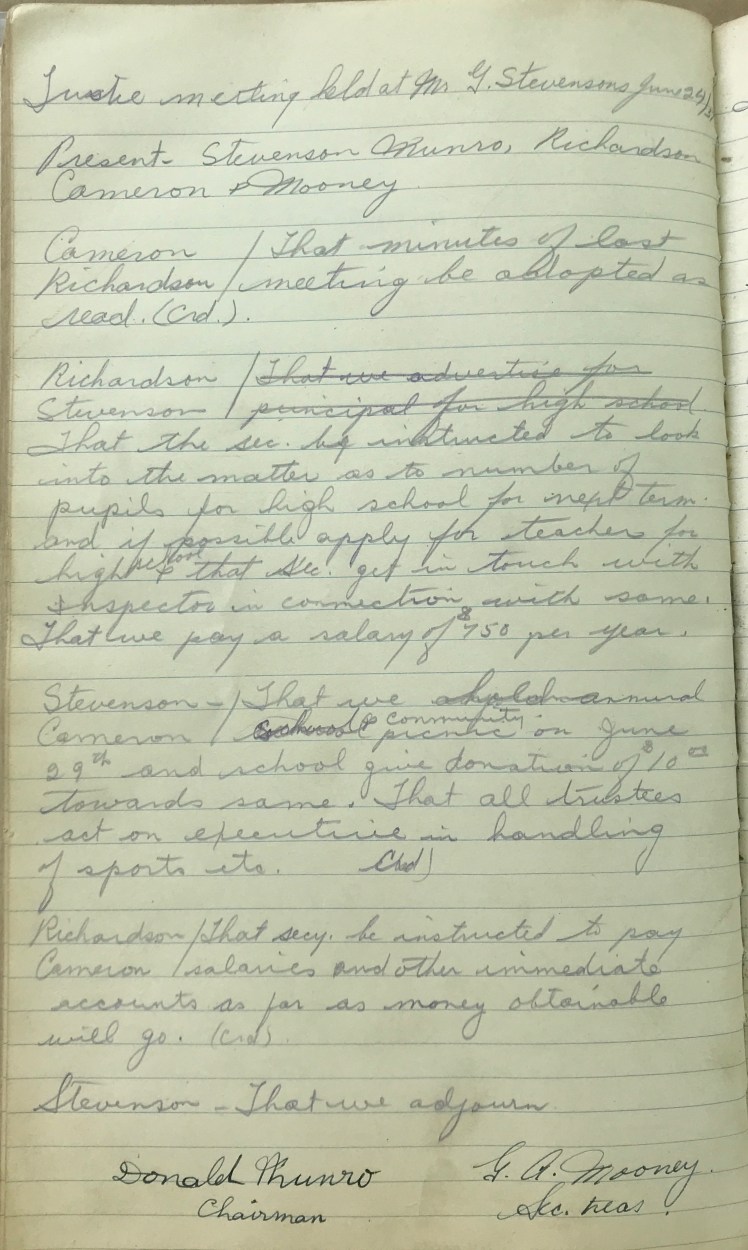 Trustee meeting held at Mr G. Stevensons June 24/
Present - Stevenson Munro, Richardson
Cameron & Mooney
Cameron / That minutes of last
Richardson / meeting be addopted as
read. (Crd.).
Richardson / That we advertise for
Stevenson / principal for high school.
That the sec. be instructed to look
into the matter as to number of
pupils for high school for next term.
and if possible apply for teacher for
high school & that Sec. get in touch with
Inspector in connection with same.
That we pay a salary of $750 per year.
Stevenson - / That we hold annual
Cameron / school community picnic on June
29th and school give donation of $10 00
towards same. That all trustees
act on executive in handling
of sports etc. Crd)
Richardson / That secy. be instructed to pay
Cameron / salaries and other immediate
accounts as far as money obtainable
will go. (Crd)
Stevenson - That we adjourn
Donald Munro G. A. Mooney.
Chairman Sec. treas.